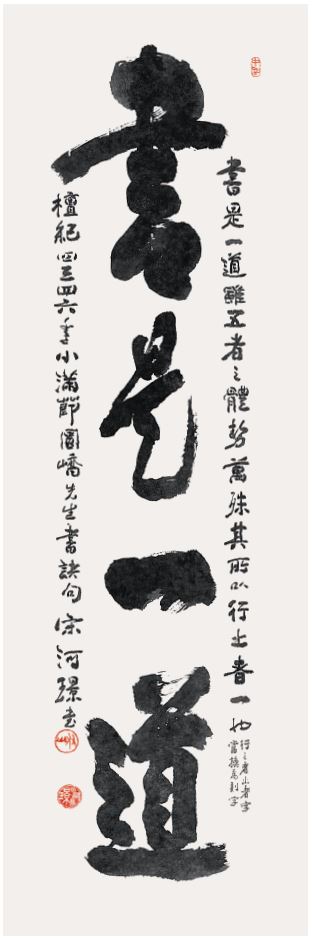 書是一道
書是一道雖五者之體勢萬殊其所以行之者一也
檀紀四三四六年小滿節圓嶠先生書訣句 宋河璟書